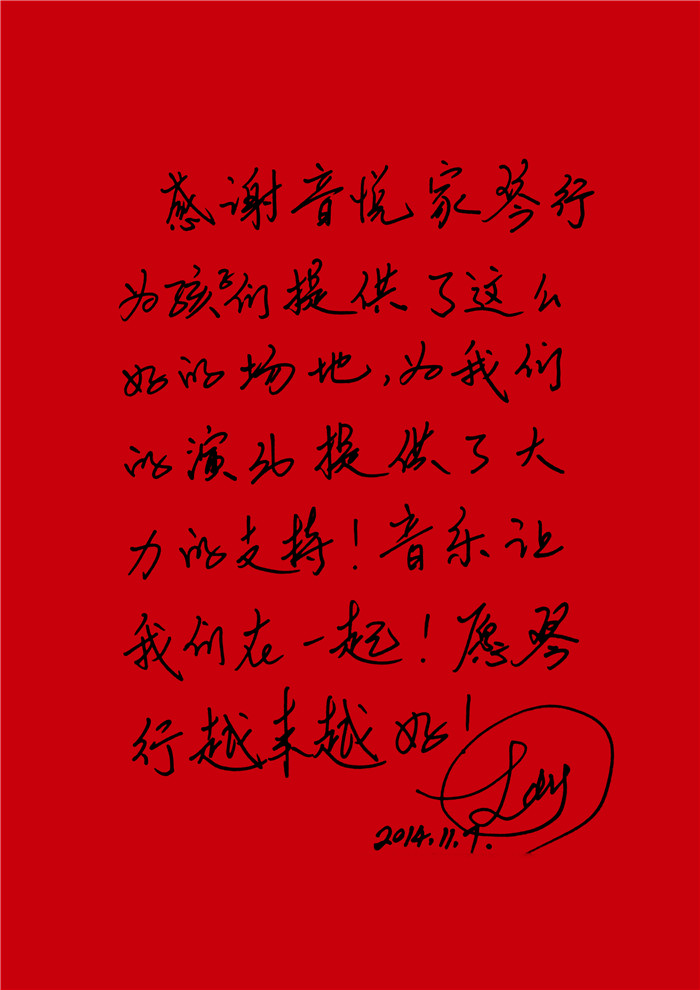 感谢音悦家琴行
为孩子们提供了这么
好的场地,为我们
的演出提供了大
力的支持!音乐让
我们在一起!愿琴
行越来越好!
2014.11.